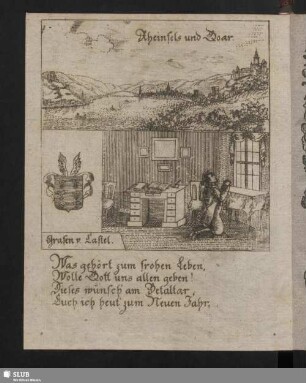 Rheinfels und Goar.
Grafen v. Castel.
Was gehört zum frohen Leben,
Wolle Gott uns allen geben!
Dieses wünsch am
Euch ich heut zum Neuen Jahr.
SLUB